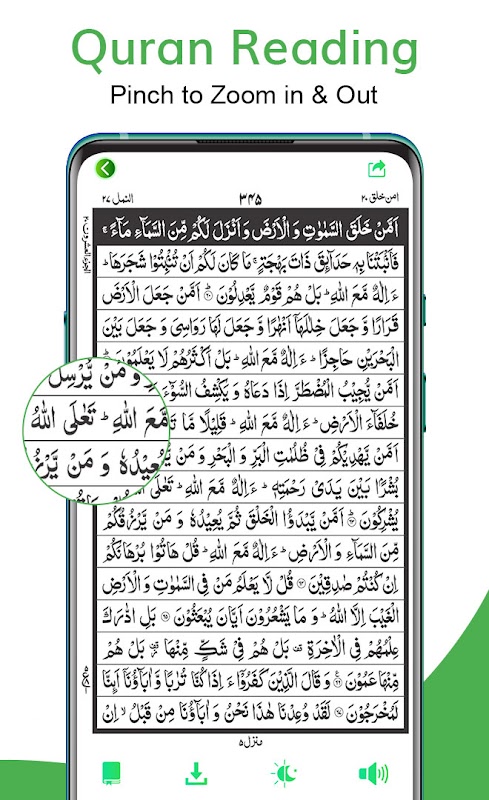 Quran Reading
Pinch to Zoom in & Out
النمل ٢٧
٣٤٥
امن خلق ٢٠
اَمَّنْ خَلَقَ السَّمٰوٰتِ وَ الْاَرْضَ وَ اَنْزَلَ لَكُمْ مِّنَ السَّمَآءِ مَآءً ۚ
فَاَنْۢبَتْنَا بِهٖ حَدَآئِقَ ذَاتَ بَهْجَةٍ ۚ مَا كَانَ لَكُمْ اَنْ تُنْۢبِتُوْا شَجَرَهَا ؕ
ءَ اِلٰهٌ مَّعَ اللّٰهِ ؕ بَلْ هُمْ قَوْمٌ يَّعْدِلُوْنَ ۞ اَمَّنْ جَعَلَ الْاَرْضَ
قَرَارًا وَّ جَعَلَ خِلٰلَهَاۤ اَنْهٰرًا وَّ جَعَلَ لَهَا رَوَاسِيَ وَ جَعَلَ بَيْنَ
الْبَحْرَيْنِ حَاجِزًا ؕ ءَ اِلٰهٌ مَّعَ اللّٰهِ ؕ بَلْ اَكْثَرُهُمْ لَا يَعْلَمُوْنَ
اَمَّنْ يُّجِيْبُ الْمُضْطَرَّ اِذَا دَعَاهُ وَ يَكْشِفُ السُّوْٓءَ
خُلَفَآءَ الْاَرْضِ ؕ ءَ اِلٰهٌ مَّعَ اللّٰهِ ؕ قَلِيْلًا مَّا
اَمَّنْ يَّهْدِيْكُمْ فِيْ ظُلُمٰتِ الْبَرِّ وَ الْبَحْرِ وَ مَنْ
بُشْرًۢا بَيْنَ يَدَيْ رَحْمَتِهٖ ؕ ءَ اِلٰهٌ مَّعَ اللّٰهِ ؕ تَعٰلَى اللّٰهُ
يُشْرِكُوْنَ ؕ اَمَّنْ يَّبْدَؤُا الْخَلْقَ ثُمَّ يُعِيْدُهٗ وَ مَنْ يَّرْزُقُكُمْ
مِّنَ السَّمَآءِ وَ الْاَرْضِ ؕ ءَ اِلٰهٌ مَّعَ اللّٰهِ ؕ قُلْ هَاتُوْا بُرْهَانَكُمْ
اِنْ كُنْتُمْ صٰدِقِيْنَ ۞ قُلْ لَّا يَعْلَمُ مَنْ فِي السَّمٰوٰتِ وَ الْاَرْضِ
الْغَيْبَ اِلَّا اللّٰهُ ؕ وَ مَا يَشْعُرُوْنَ اَيَّانَ يُبْعَثُوْنَ ۞ بَلِ ادّٰرَكَ
عِلْمُهُمْ فِي الْاٰخِرَةِ ۫ بَلْ هُمْ فِيْ شَكٍّ مِّنْهَا ۫ بَلْ هُمْ
مِّنْهَا عَمُوْنَ ۞ وَ قَالَ الَّذِيْنَ كَفَرُوْۤا ءَ اِذَا كُنَّا تُرٰبًا وَّ اٰبَآؤُنَاۤ اَئِنَّا
لَمُخْرَجُوْنَ ۞ لَقَدْ وُعِدْنَا هٰذَا نَحْنُ وَ اٰبَآؤُنَا مِنْ قَبْلُ ۙ اِنْ
منزل ٥
وَ مَنْ يُّرْسِلُ
مَّعَ اللّٰهِ ؕ تَعٰلَى اللّٰهُ
يُعِيْدُهٗ وَ مَنْ يَّرْزُ